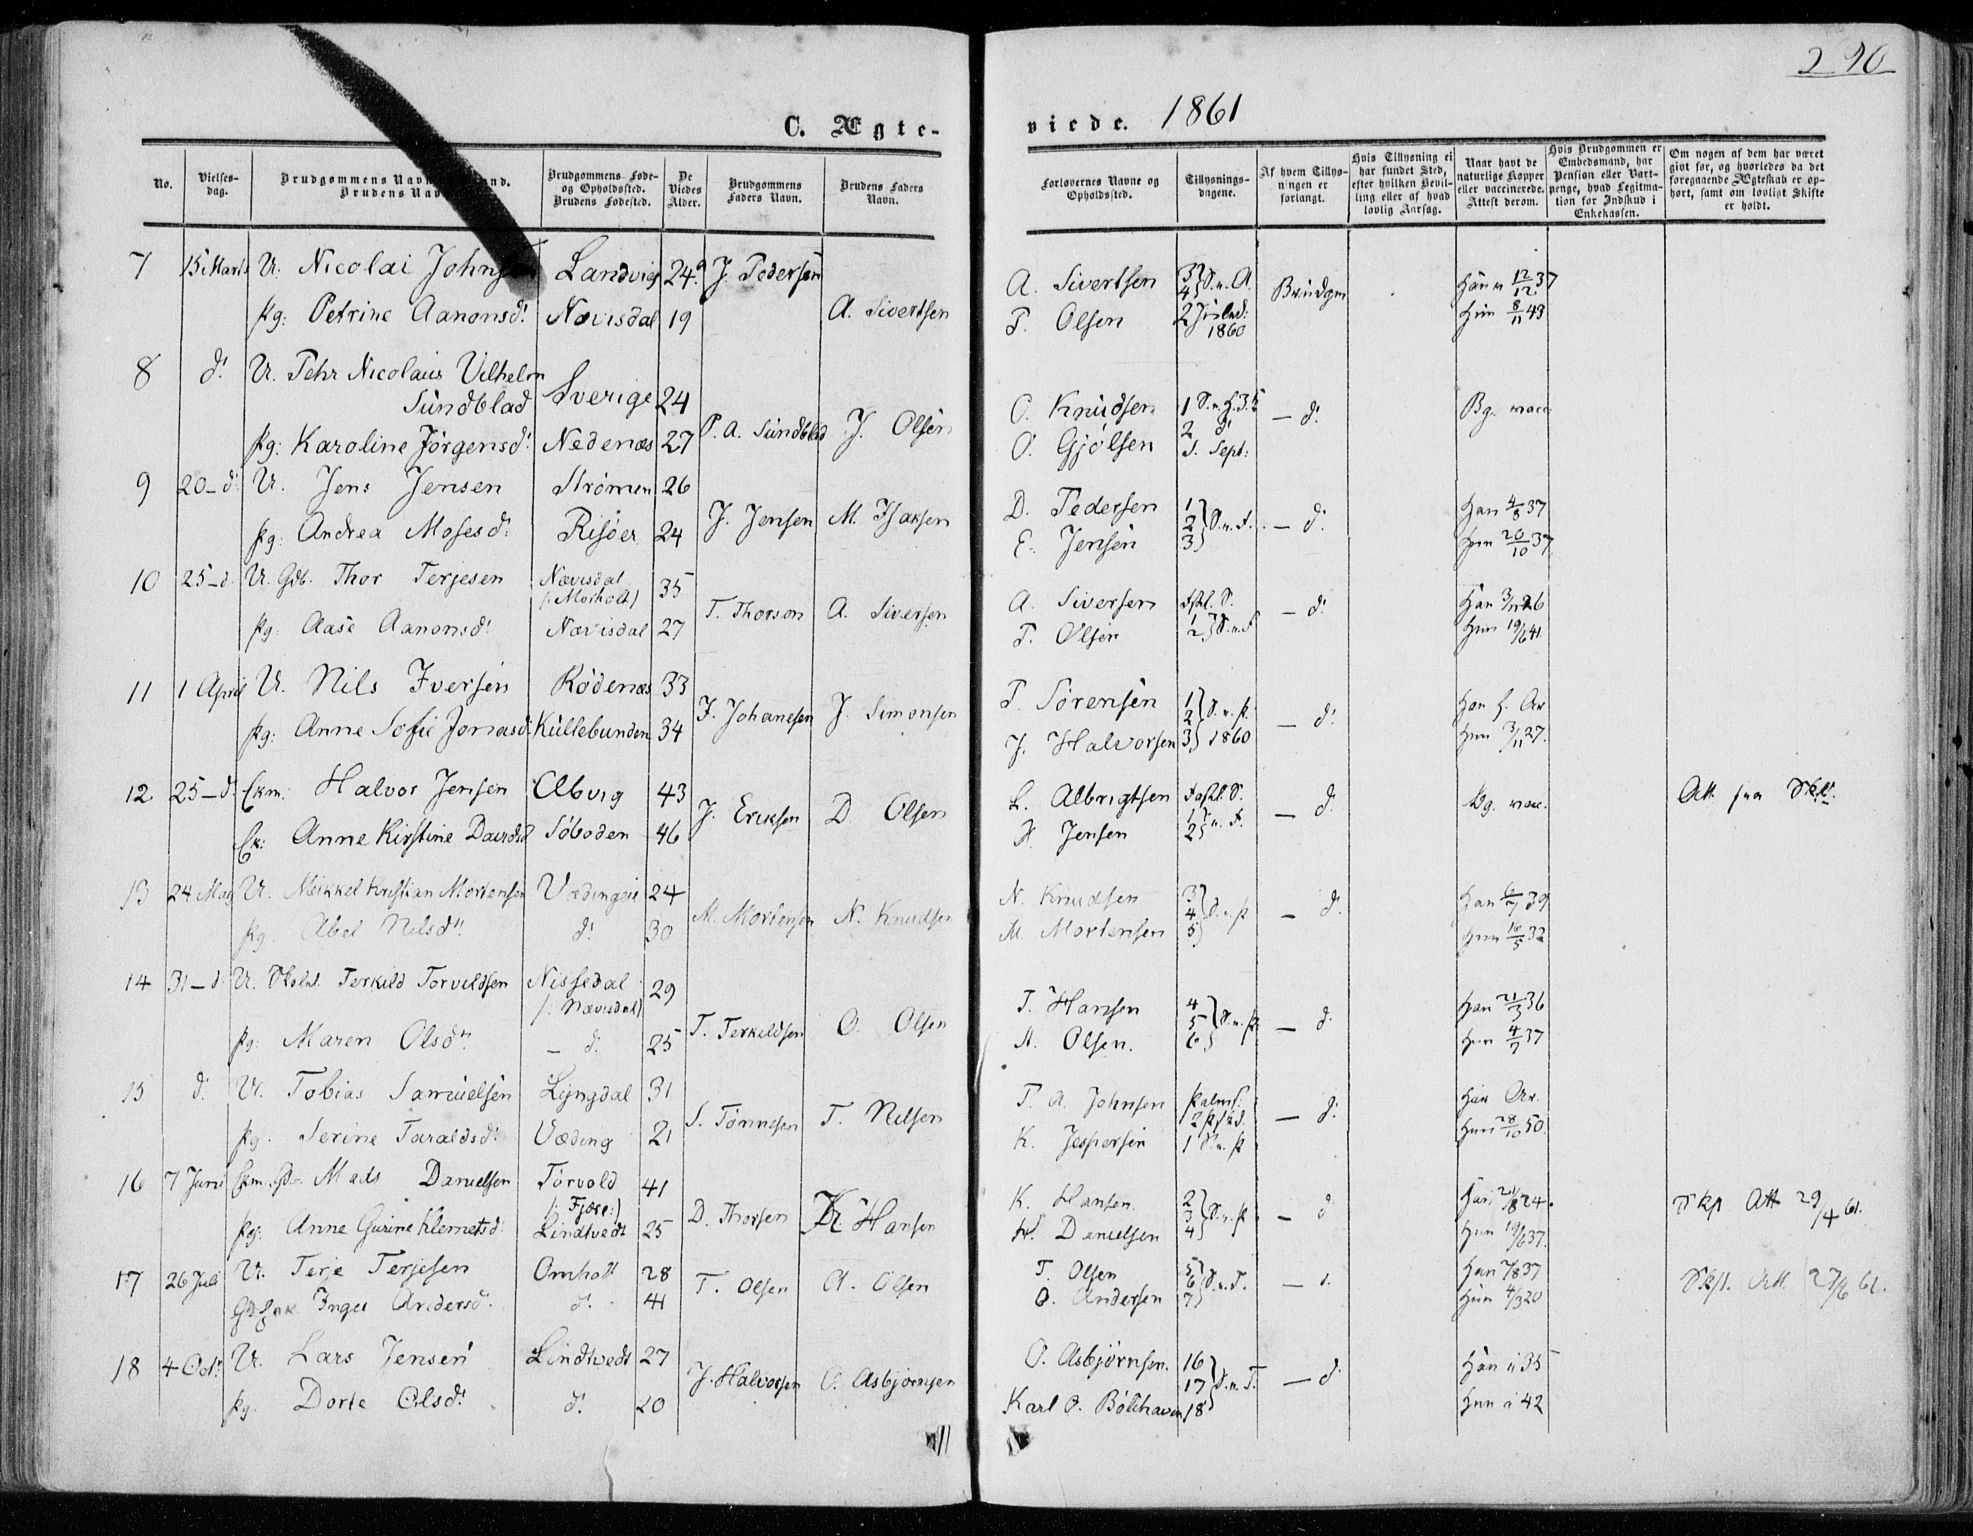 290
C. Ægte-
viede. 1861
No.
Vielses-
dag.
Brudgommens
Brudens
Brudgommens Føde-
og Opholdssted.
Brudens Fødested.
De
Viedes
Alder.
Brudgommens
Faders Navn.
Brudens Faders
Navn.
Forlovernes Navne og
Opholdssted.
Tillysnings-
dagene.
Af hvem Tillys-
ningen er
forlangt.
Hvis Tillysning ei
har fundet Sted,
efter hvilken Bevil-
ling eller af hvad
lovlig Aarsag.
Naar havt de
naturlige Kopper
eller vaccinerede.
Attest derom.
Hvis Brudgommen er
Embedsmand, har
Pension eller Vart-
penge, hvad Legitima-
tion for Indskud i
Enkekassen.
Om nogen af dem har været
givt før, og hvorledes da det
foregaaende Ægteskab er op-
hørt, samt om lovligt Skifte
er holdt.
7 15 Marts U. Nicolai Landvig 24 J. Pedersen A. Sivertsen 3 4 S. n. A. Brudgm Han 12/12 37
Pg: Petrine Aanonsd. Nævisdal 19 A. Sivertsen P. Olsen 2 Juled: 1860 Hun 8/11 43
8 d. U. Pehr Nicolaus Vilhelm
Sundblad Sverige 24 P. A. Sundblad J. Olsen O. Knudsen 1 — d. Bg. vacc.
Pg: Karoline Jörgensd. Nedenæs 27 O. Gjølsen 2 d. S. Sept:
9 20 — d. U. Jens Jensen Strømen 26 J. Jensen M. Isaksen D. Pedersen 1 2 3 — d. Han 4/8 37
Pg: Andrea Mosesd. Risøer 24 E. Jensen Hun 20/10 37
10 25 — d. U. Gdb. Thor Terjesen Nævisdal
(: Morholt) 35 T. Thorson A. Siversen A. Siversen — d. Han 3/11 26
Pg. Aase Aanonsd. Nævisdal 27 P. Olsen Hun 19/6 41
11 1 April U. Nils Iversen Rödenæs 33 I. Johanesen J. Simonsen P. Sörensen 1 2 3 S. n. P. 1860 — d.
Pg: Anne Sofie Jonasd. Kullebunden 34 J. Halvorsen Hun 3/11 27.
12 25 — d. Ekm: Halvor Jensen Alvvig 43 J. Eriksen D. Olsen L. Albrigtsen — d. Bg. vacc. Att. fra Skft.
Ek: Anne Kirstine Davidsd. Söboden 46 Jensen
13 24 Mai U. Mikkel Kristian Mortensen Vædingen 24 M. Mortensen N. Knudsen N. Knudsen 3 4 5 S. n. P — d. Han 6/7 39
Pg. Abel Nilsd. d. 30 M. Mortensen Hun 16/5 32
14 31 — d. U. Terkild Torvildsen Nissedal
(: Nævisdal) 29 T. Terkildsen O. Olsen T. Hansen 4 5 6 S. n. P. — d. Han 21/3 36
Pg: Maren Olsd. — d. 25 A. Olsen. Hun 4/7 37
15 d. U. Tobias Samuelsen Lyngdal 31 S. Tönnesen T. Nilsen T. A. Johnsen Palms: — d. Han
Pg. Serine Taraldsd. Væding 21 K. Jespersen 1 S. n. P Hun 28/10 50.
16 7 Juni Ekm. Mads Danielsen Torvold
(: Fjære:) 41 D. Thorsen K. Hansen K. Hansen 2 3 4 S. n. P — d. Han 21/8 24. Skp Att 29/4 61.
Pg: Anne Gurine Klemetsd. Lindtvedt 25 H. Danielsen Hun 19/6 37.
17 26 Juli U. Terje Terjesen Omholt 28 T. Olsen A. Olsen T. Olsen 5 6 7 S. n. T. — d. Han 7/8 37 Skft. Att. 27/6 61.
Inger Andersd. d. 41 O. Andersen Hun 4/3 20
18 4 Oct. U. Lars Jensen Lindtvedt 27 J. Halvorsen O. Asbjørnsen O. Asbjørnsen. 16 17 18 S. n. T. — d. Han i 35
Pg. Dorte Olsd. d. 20 Karl O. Bölehaven Hun i 42